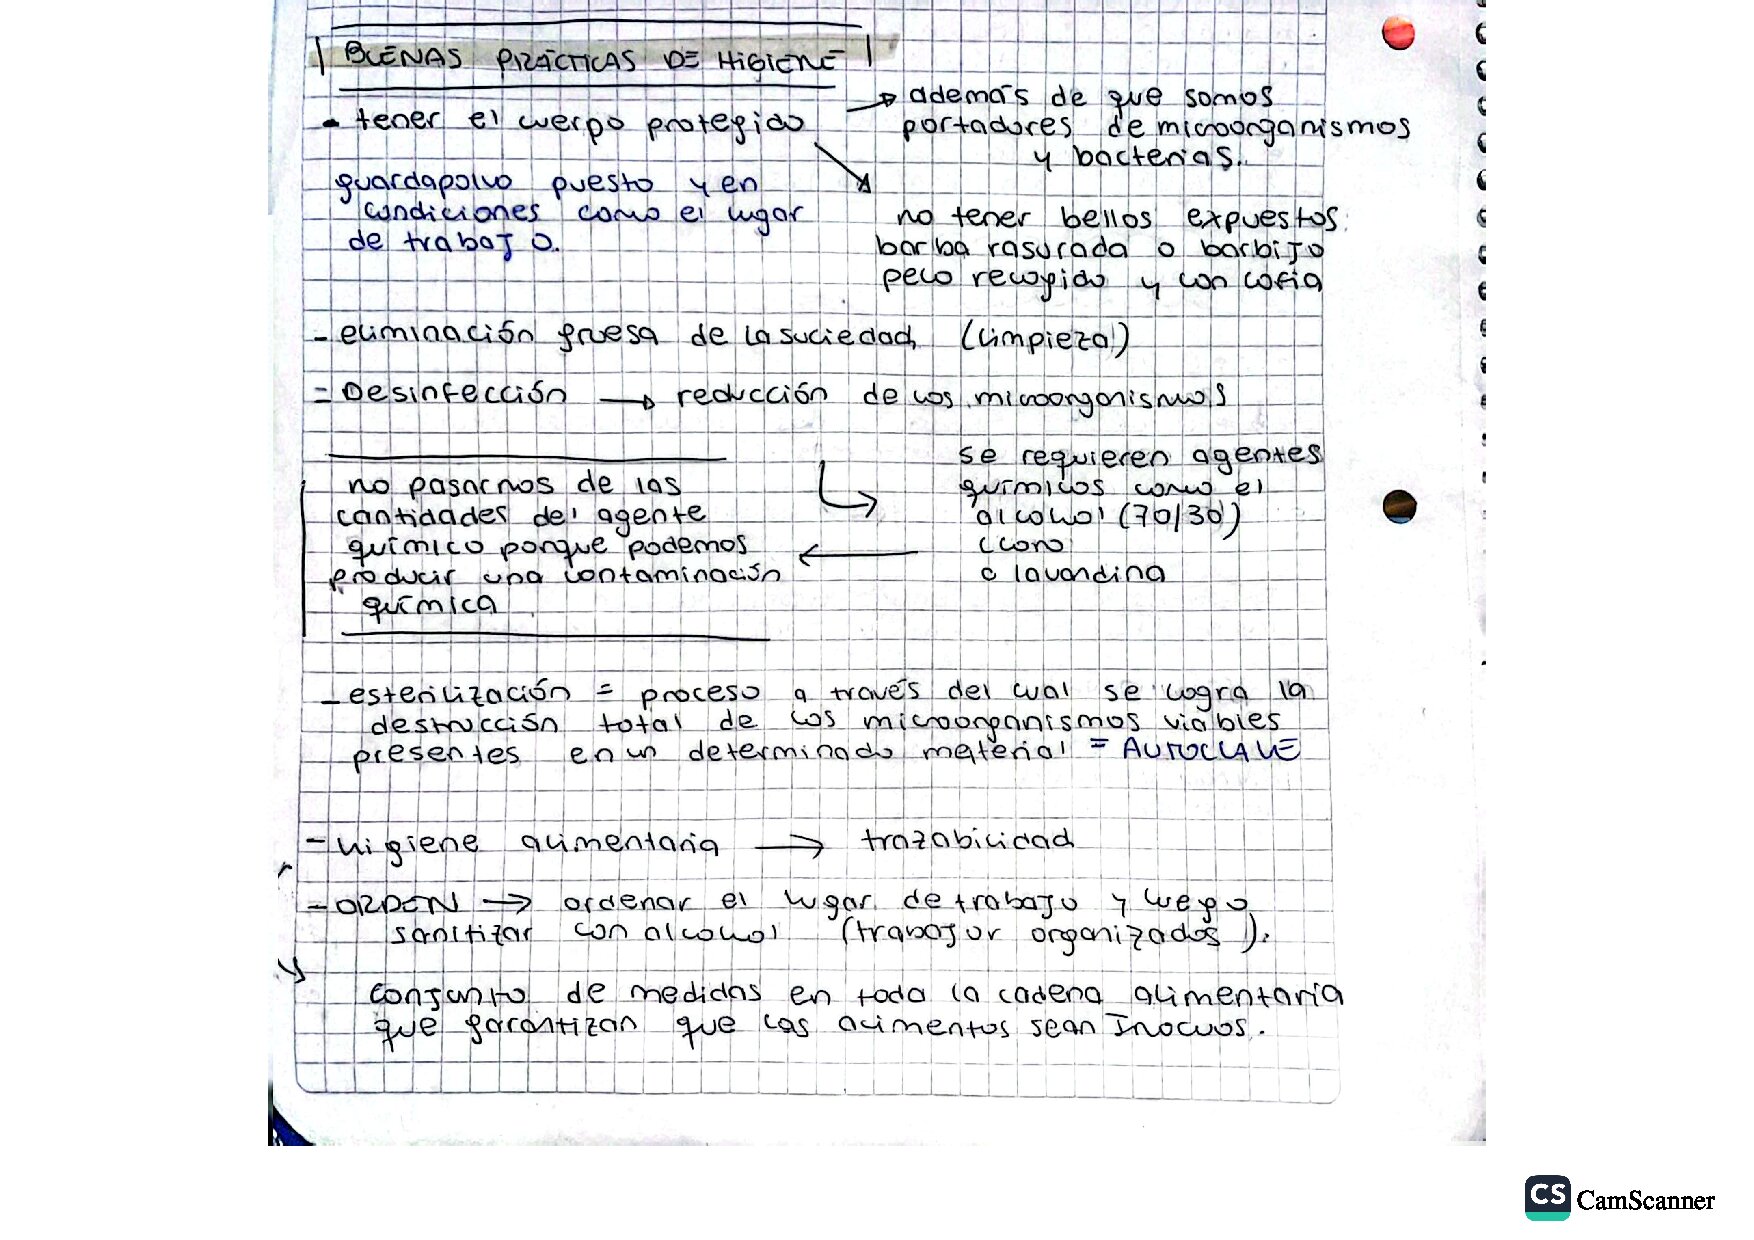 BUENAS PRÁCTICAS DE HIGIENE
- tener el cuerpo protegido
→ además de que somos
portadores de microorganismos
y bacterias.
guardapolvo puesto y en
condiciones como el lugar
de trabajo.
no tener bellos expuestos.
barba rasurada o barbijo
pelo recogido y con cofia
- eliminación gruesa de la suciedad (limpieza)
- Desinfección → reducción de los microorganismos
se requieren agentes
químicos como el
alcohol (70/30)
cloro
o lavandina
no pasarnos de las
cantidades del agente
químico porque podemos
producir una contaminación
química
- esterilización = proceso a través del cual se logra la
destrucción total de los microorganismos viables
presentes en un determinado material = AUTOCLAVE
- higiene alimentaria → trazabilidad
- ORDEN → ordenar el lugar de trabajo y luego
sanitizar con alcohol (trabajar organizados).
conjunto de medidas en toda la cadena alimentaria
que garantizan que los alimentos sean Inocuos.
CS CamScanner